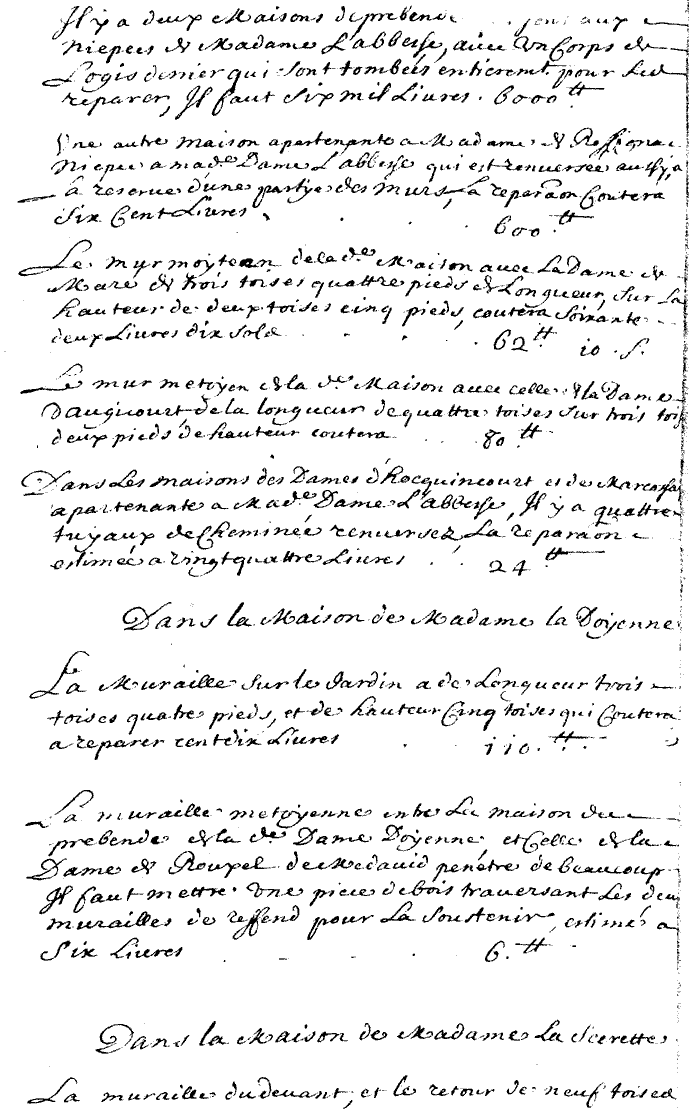 Il y a deux Maisons de prebende sont aux
Niepces de Madame L'abbesse, avec un Corps de
Logis dernier qui sont tombées entieremt. pour les
reparer, Il faut Six mil Livres. 6000 tt
Une autre maison apartenante a Madame de Rossignac
Niepce a made. Dame L'abbesse qui est renversée aussy, a
La reserve d'une partye des murs, La reparaon Coutera
Six Cent Livres . . . 600 tt
Le mur moytean de lade. Maison avec La Dame de
Mare de trois toises quattre pieds de Longueur, sur La
hauteur de deux toises cinq pieds, coutera soixante
deux Livres dix sols . . . 62 tt 10 . s.
Le mur metoyen de la de. Maison avec celle de la Dame
D'augicourt de la longueur de quattre toises sur trois tois
deux pieds de hauteur coutera . . 80 tt
Dans Les maisons des Dames d'hocquincourt et de
apartenante a Made. Dame L'abbesse, Il y a quattre
tuyaux de Cheminée renversez La reparaon
estimée a vingt quattre Livres . . 24 tt
Dans la Maison de Madame la Doyenne
La Muraille sur le Jardin a de Longueur trois
toises quatre pieds, et de hauteur Cinq toises qui Coutera
a reparer cent dix Livres . 110. tt.
La muraille metoyenne entre La maison du
prebende de la de. Dame Doyenne, et Celle de la
Dame de Roupel de Medavid penétre de beaucoup
Il faut mettre une piece de bois traversant Les deu
murailles de reffend pour La soustenir, estimée a
Six Livres . . . 6. tt
Dans la Maison de Madame La Scerette
La muraille du devant, et le retour de neuf toises